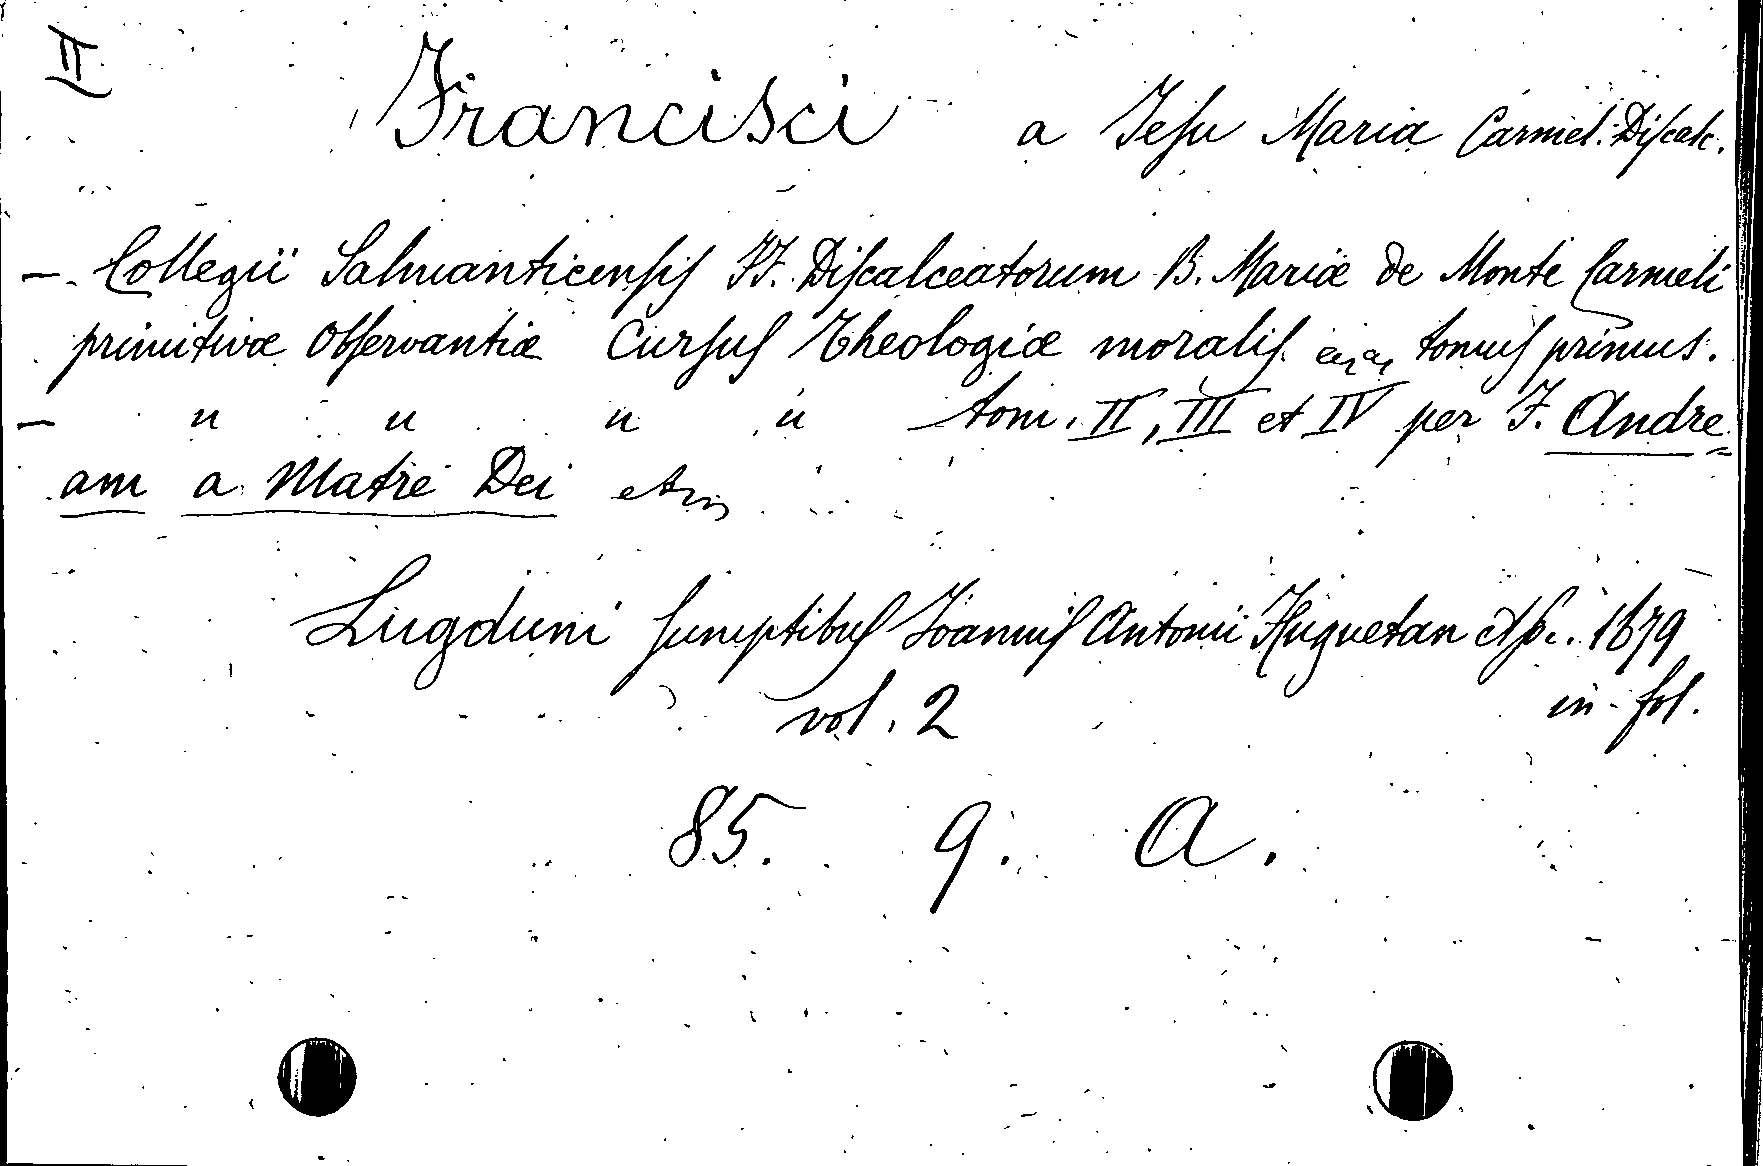 II
Francisci a Jeſu Maria Carmel. Diſcalc.
— Collegii Salmanticenſiſ FF. Diſcalceatorum B. Mariæ de Monte Carmeli
primitivæ Obſervantiæ Curſuſ Theologiæ moraliſ tomuſ primus.
— " " " " tom. II, III et IV per F. Andre=
am a Matre Dei
Lugduni ſumptibuſ Joanniſ Antonii Huguetan et Soc. 1679
vol. 2 in fol.
85. 9. A.